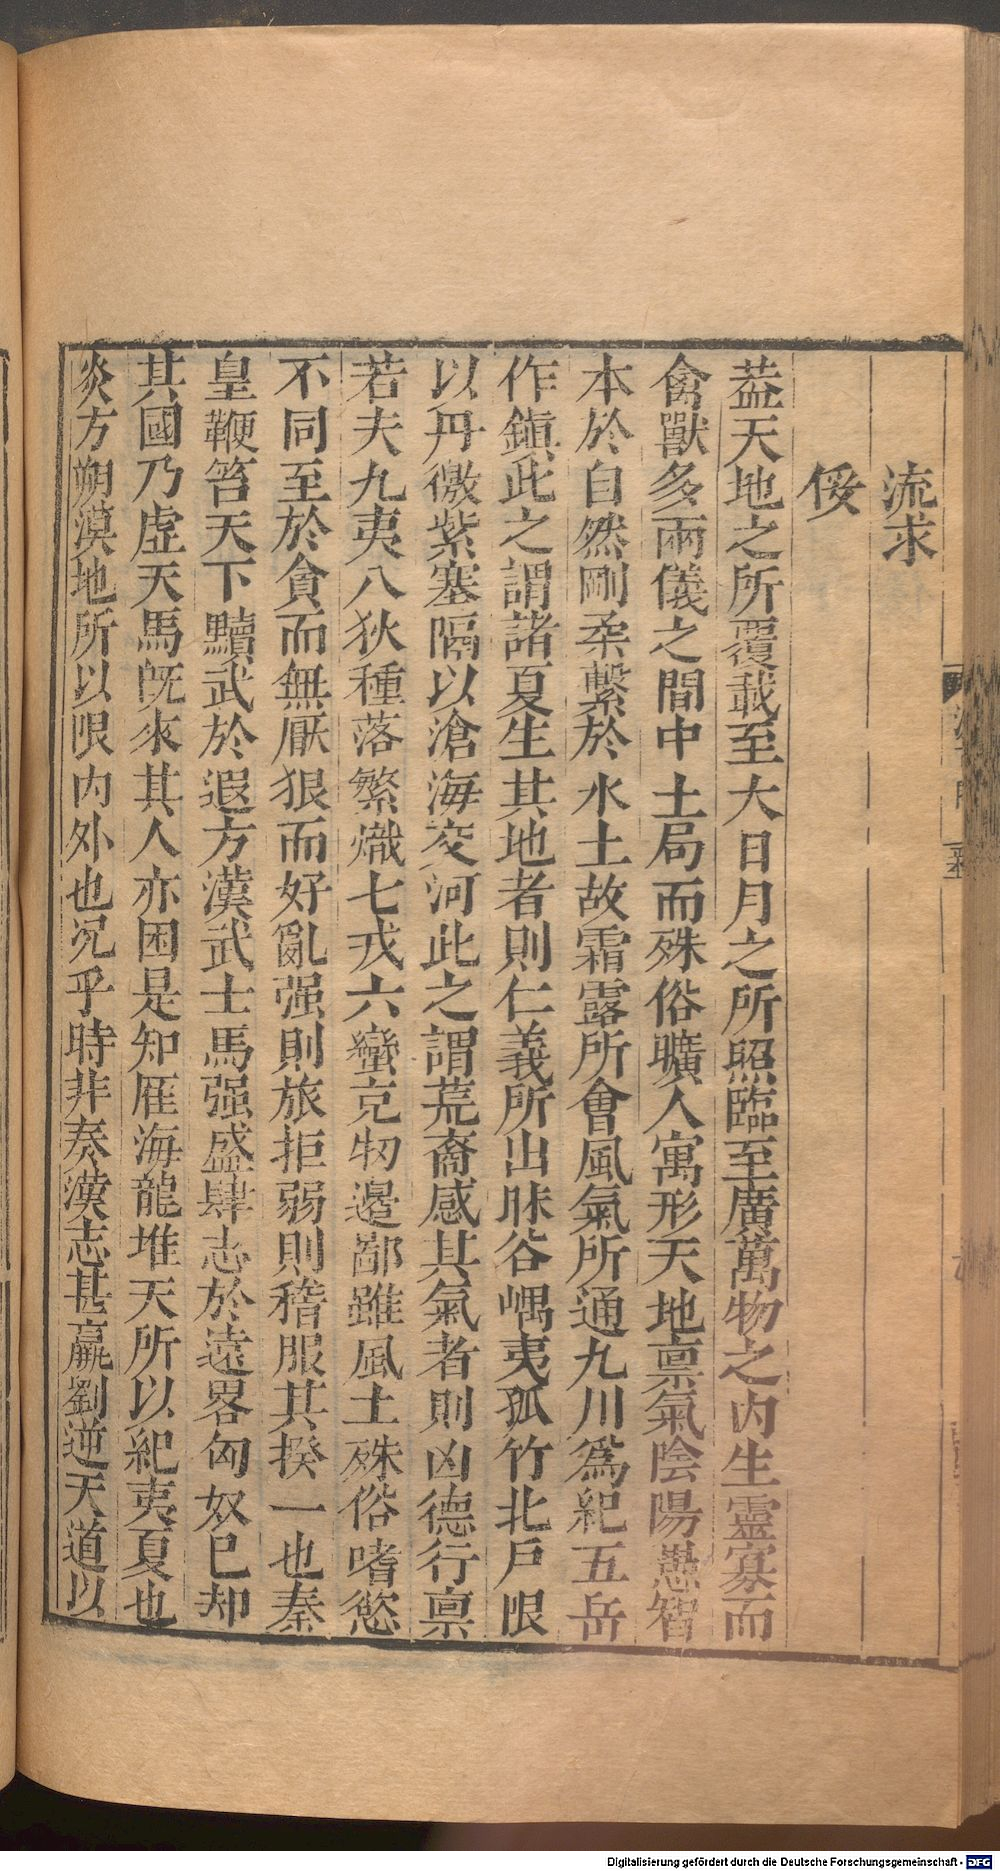 流求
倭
葢天地之所覆載至大日月之所照臨至廣萬物之内生靈寡而
禽獸多兩儀之間中土局而殊俗曠人寓形天地禀氣陰陽愚智
本於自然剛柔繫於水土故霜露所會風氣所通九川爲紀五岳
作鎮此之謂諸夏生其地者則仁義所出昧谷嵎夷孤竹北戸限
以丹徼紫塞隔以滄海交河此之謂荒裔感其氣者則凶德行禀
若夫九夷八狄種落繁熾七戎六蠻充牣邊鄙雖風土殊俗嗜慾
不同至於貪而無厭狠而好亂强則旅拒弱則稽服其揆一也秦
皇鞭笞天下黷武於遐方漢武士馬强盛肆志於遠畧匈奴已却
其國乃虚天馬旣來其人亦困是知雁海龍堆天所以紀夷夏也
炎方朔漠地所以限内外也况乎時非秦漢志甚嬴劉逆天道以
Digitalisierung gefördert durch die Deutsche Forschungsgemeinschaft - DFG